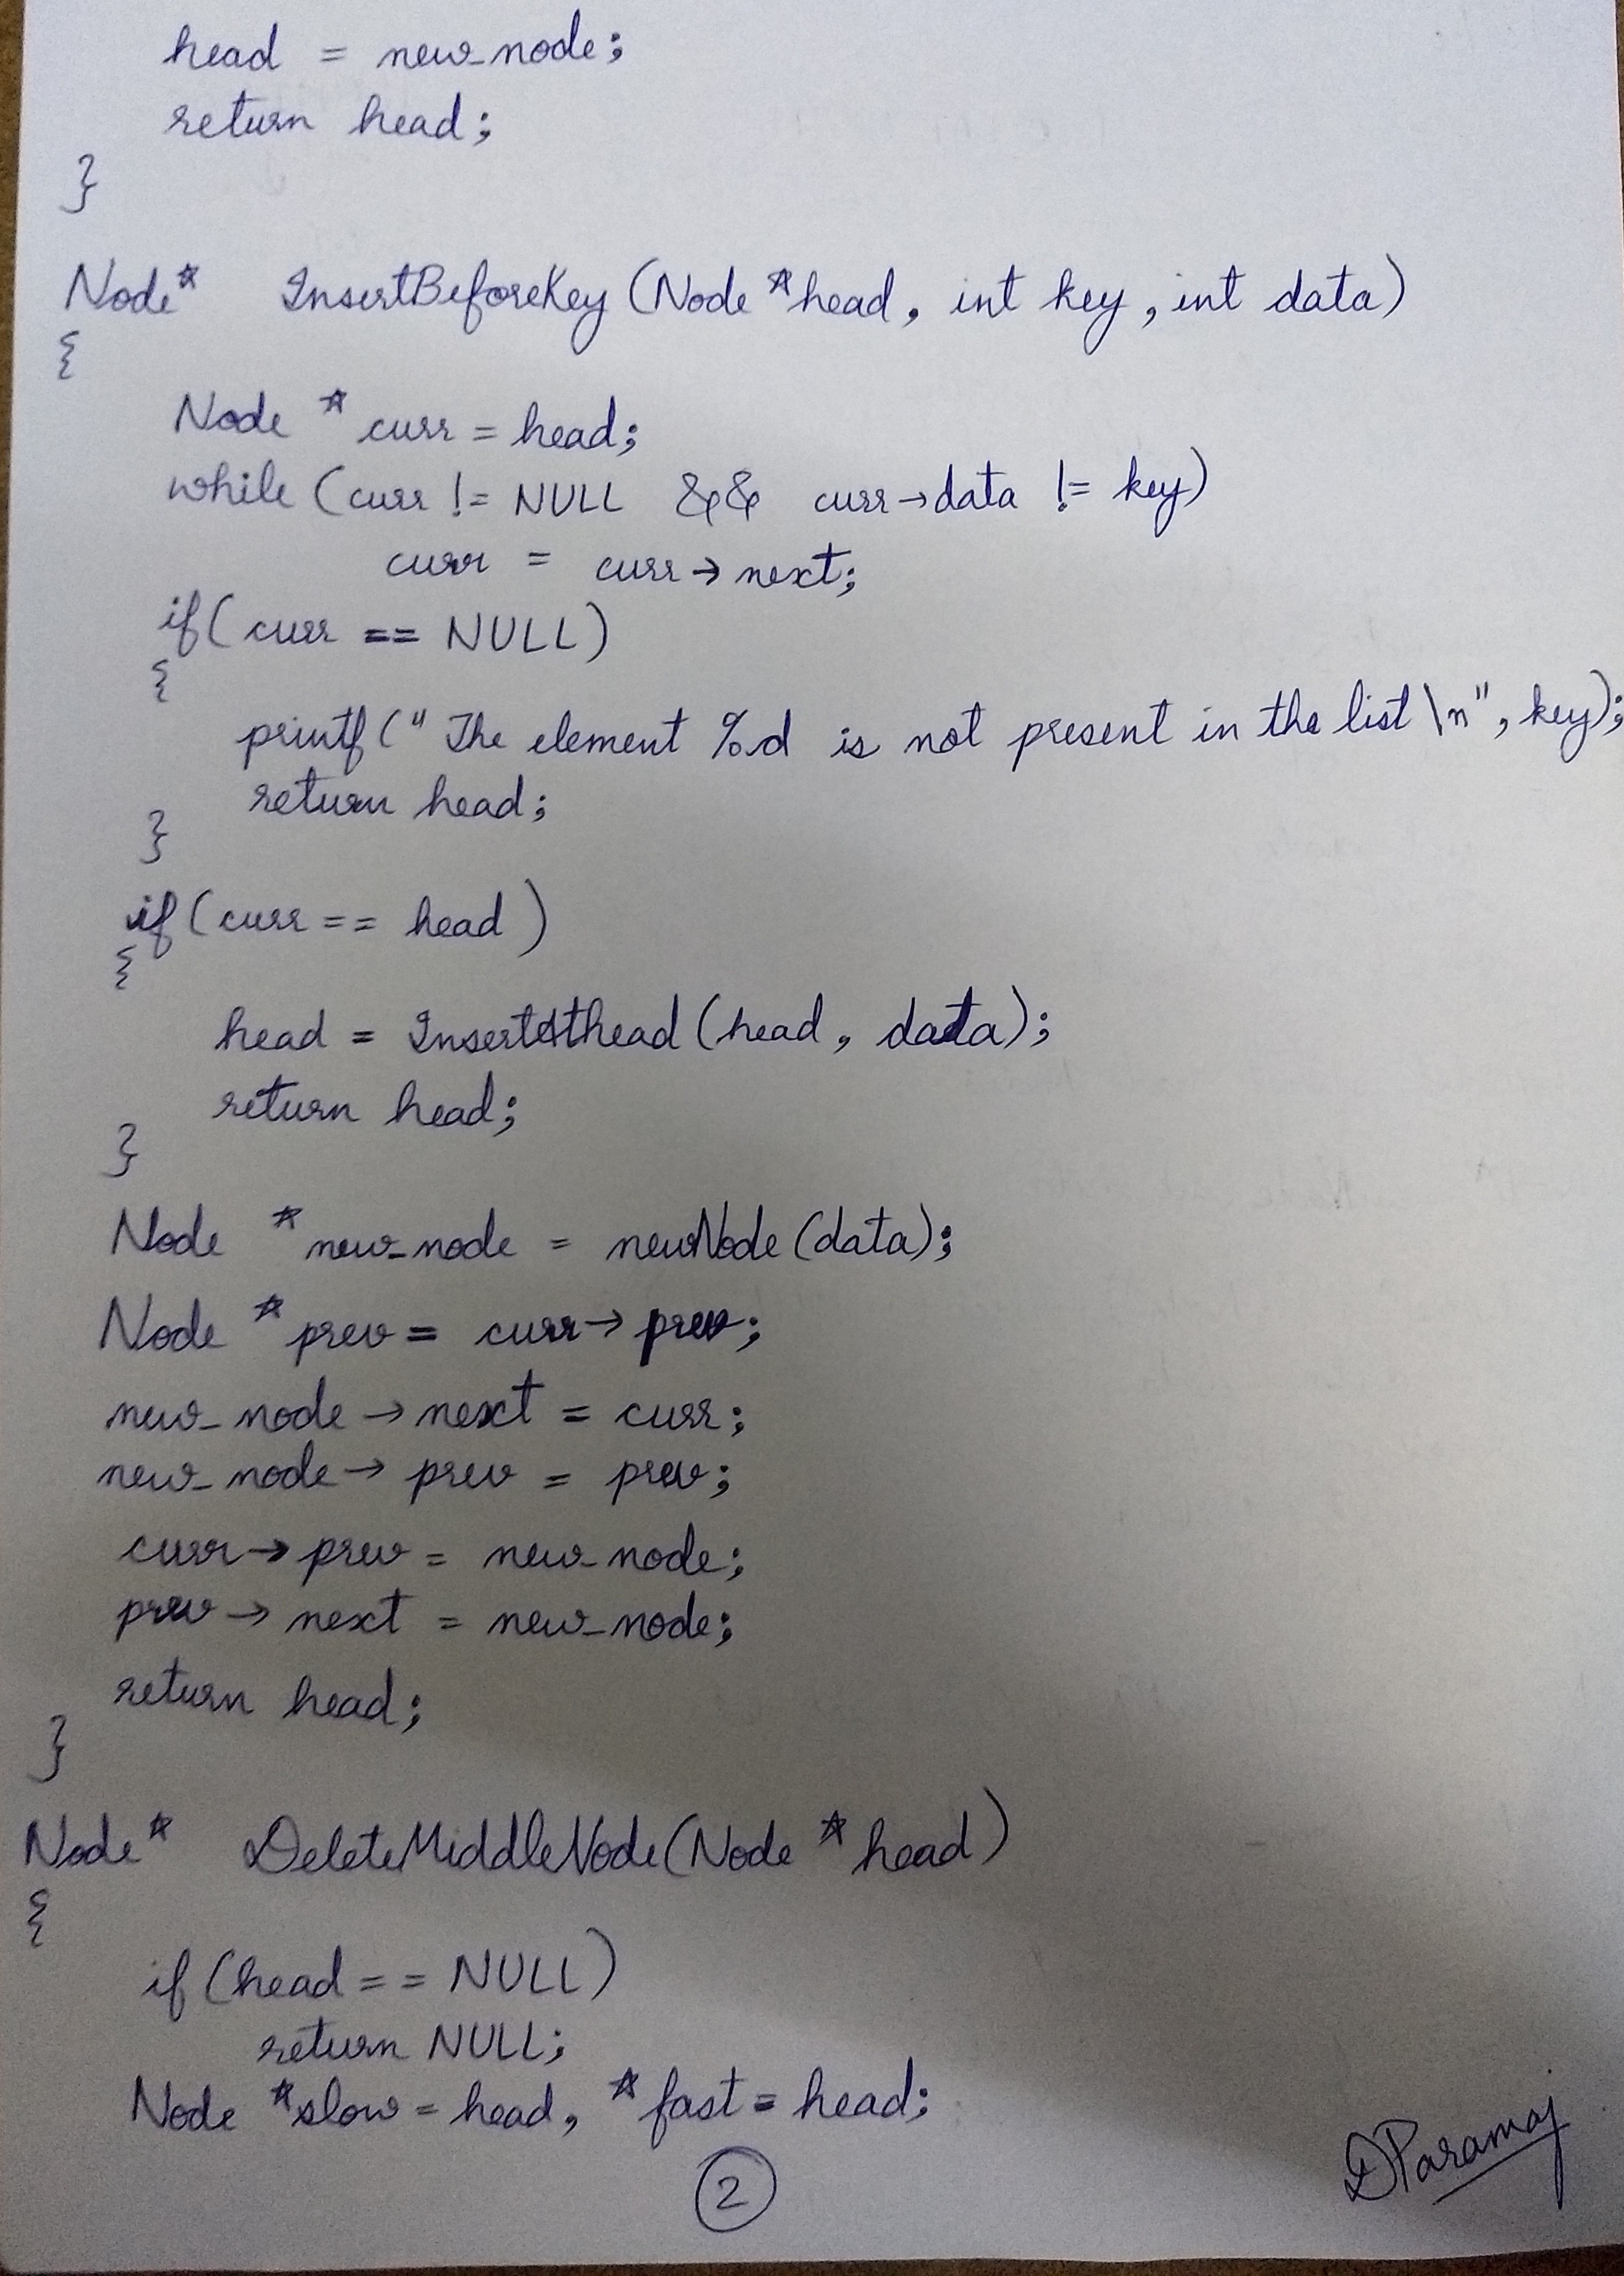 head = new_node;
return head;
}
Node* InsertBeforeKey (Node *head, int key, int data)
{
Node * curr = head;
while (curr != NULL && curr→data != key)
curr = curr→next;
if( curr == NULL)
{
printf(" The element %d is not present in the list \n", key);
return head;
}
if(curr == head )
{
head = InsertAthead (head, data);
return head;
}
Node *new_node = newNode (data);
Node *prev = curr→prev;
new_node→next = curr;
new_node→prev = prev;
curr→prev = new_node;
prev→next = new_node;
return head;
}
Node* DeleteMiddleNode(Node *head)
{
if (head == NULL)
return NULL;
Node *slow = head, *fast = head;
2
DParamaj